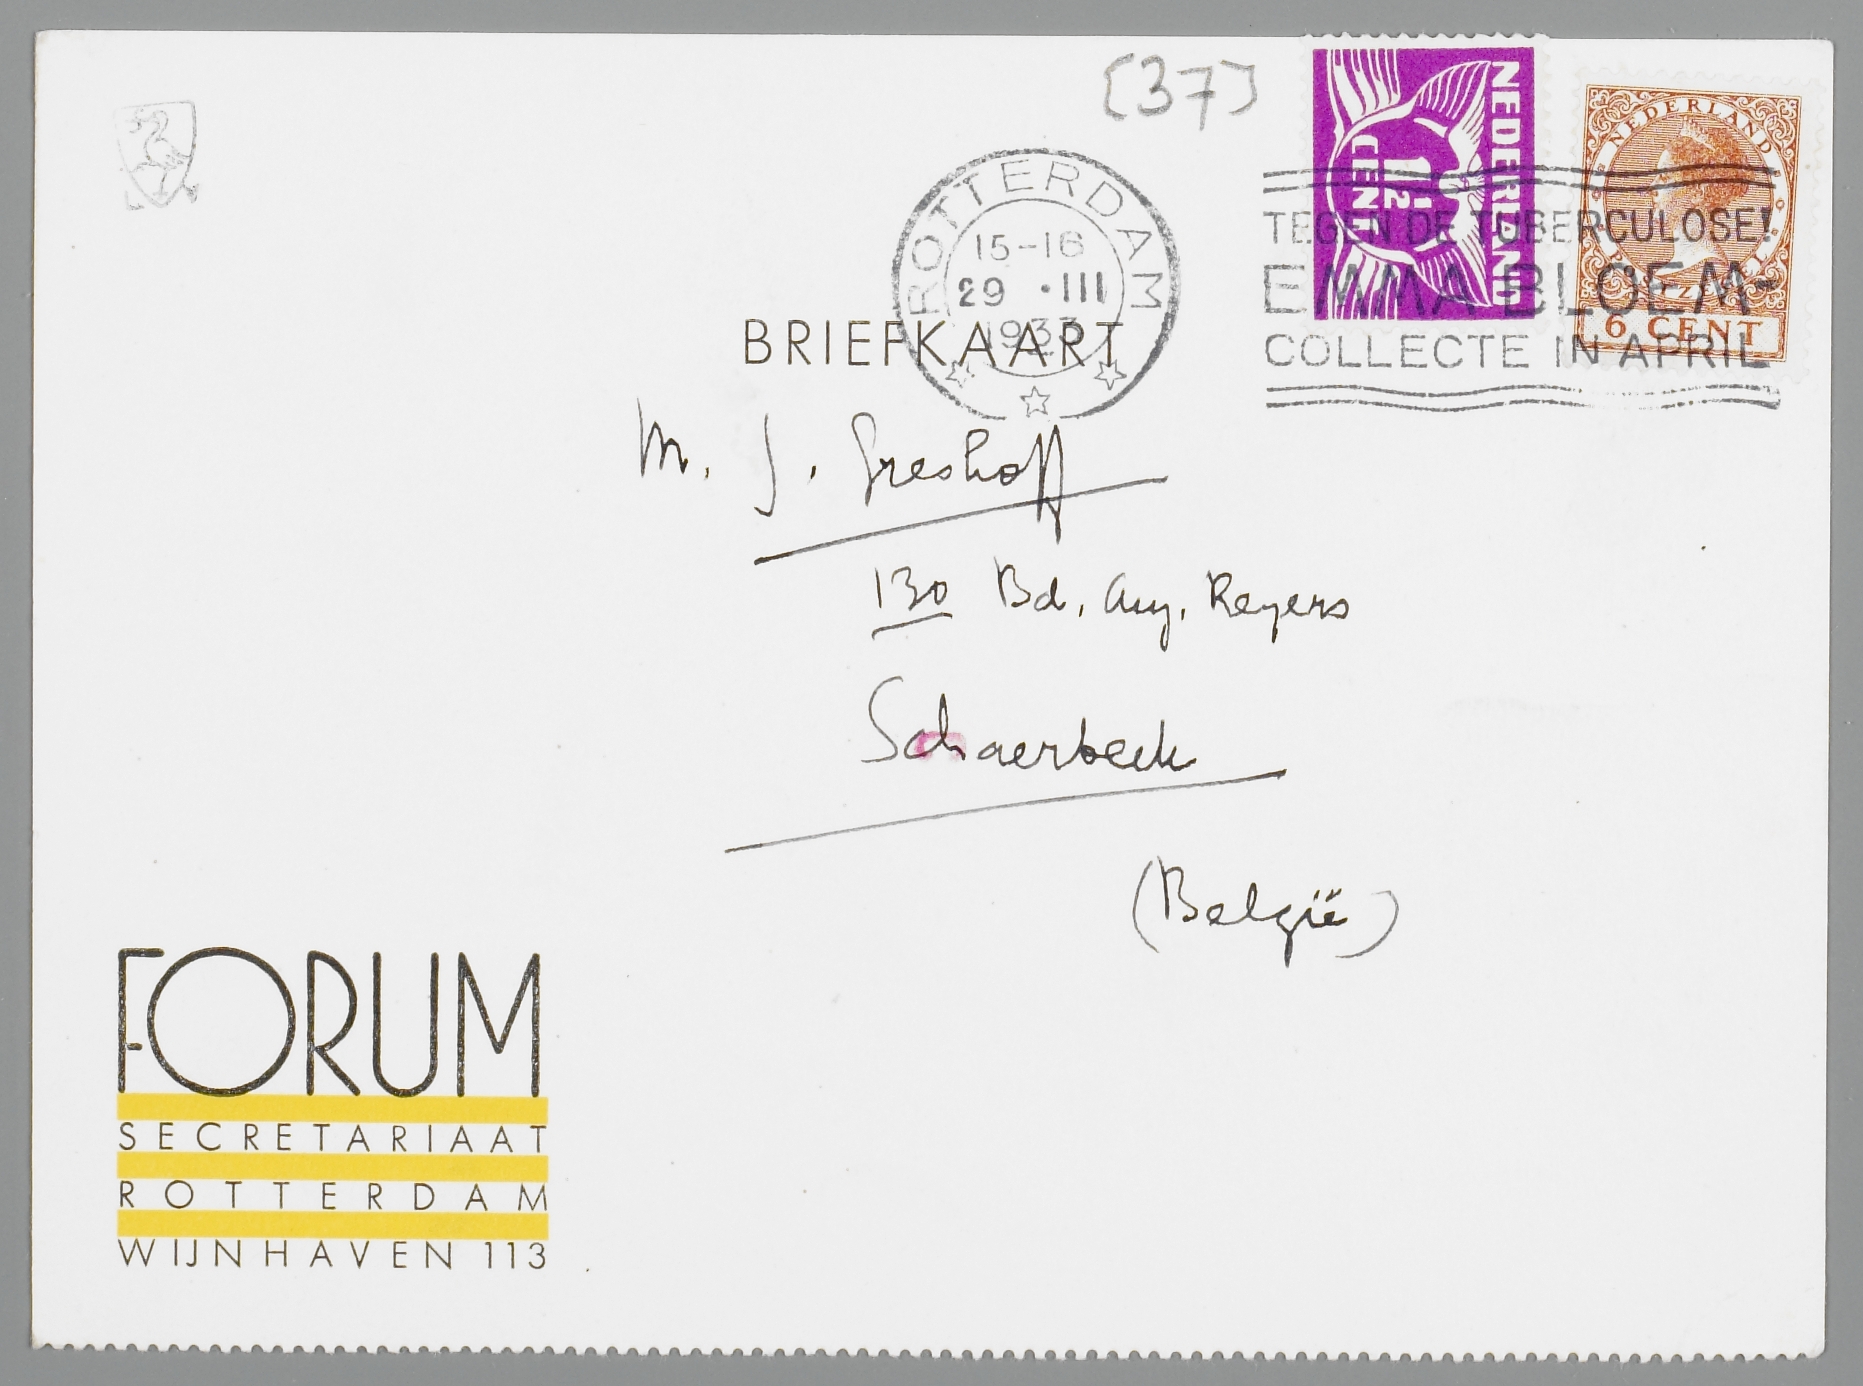 [37]
NEDERLAND
1½
CENT
NEDERLAND
6 CENT
ROTTERDAM
15-16
29 .III
1933
TEGEN DE TUBERCULOSE!
EMMA BLOEM-
COLLECTE IN APRIL
BRIEFKAART
M. J. Greshoff
130 Bd. Aug. Reyers
Schaerbeek
(België)
FORUM
SECRETARIAAT
ROTTERDAM
WIJNHAVEN 113